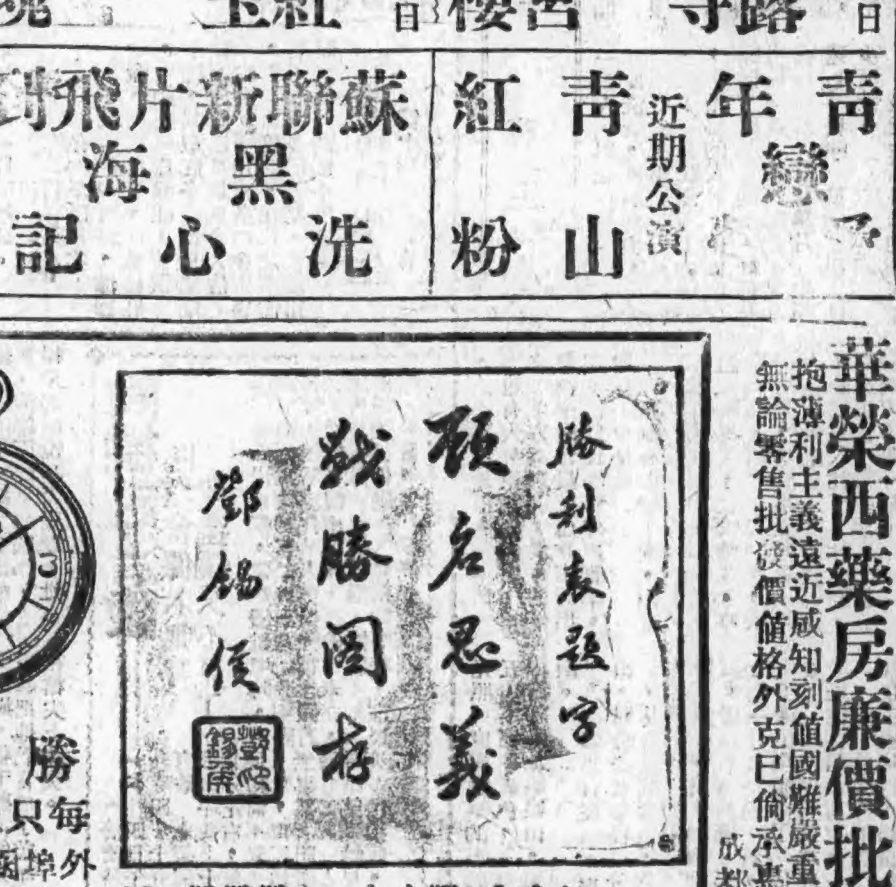 青年
戀
近期公演
青山
紅粉
蘇聯新片飛到
黑海
洗心記
華榮西藥房廉價批
抱薄利主義遠近咸知刻值國難嚴重
無論零售批發價值格外克己倘承惠
成都
勝利表題字
顧名思義
戰勝圖存
鄧錫侯
勝
每只
外埠